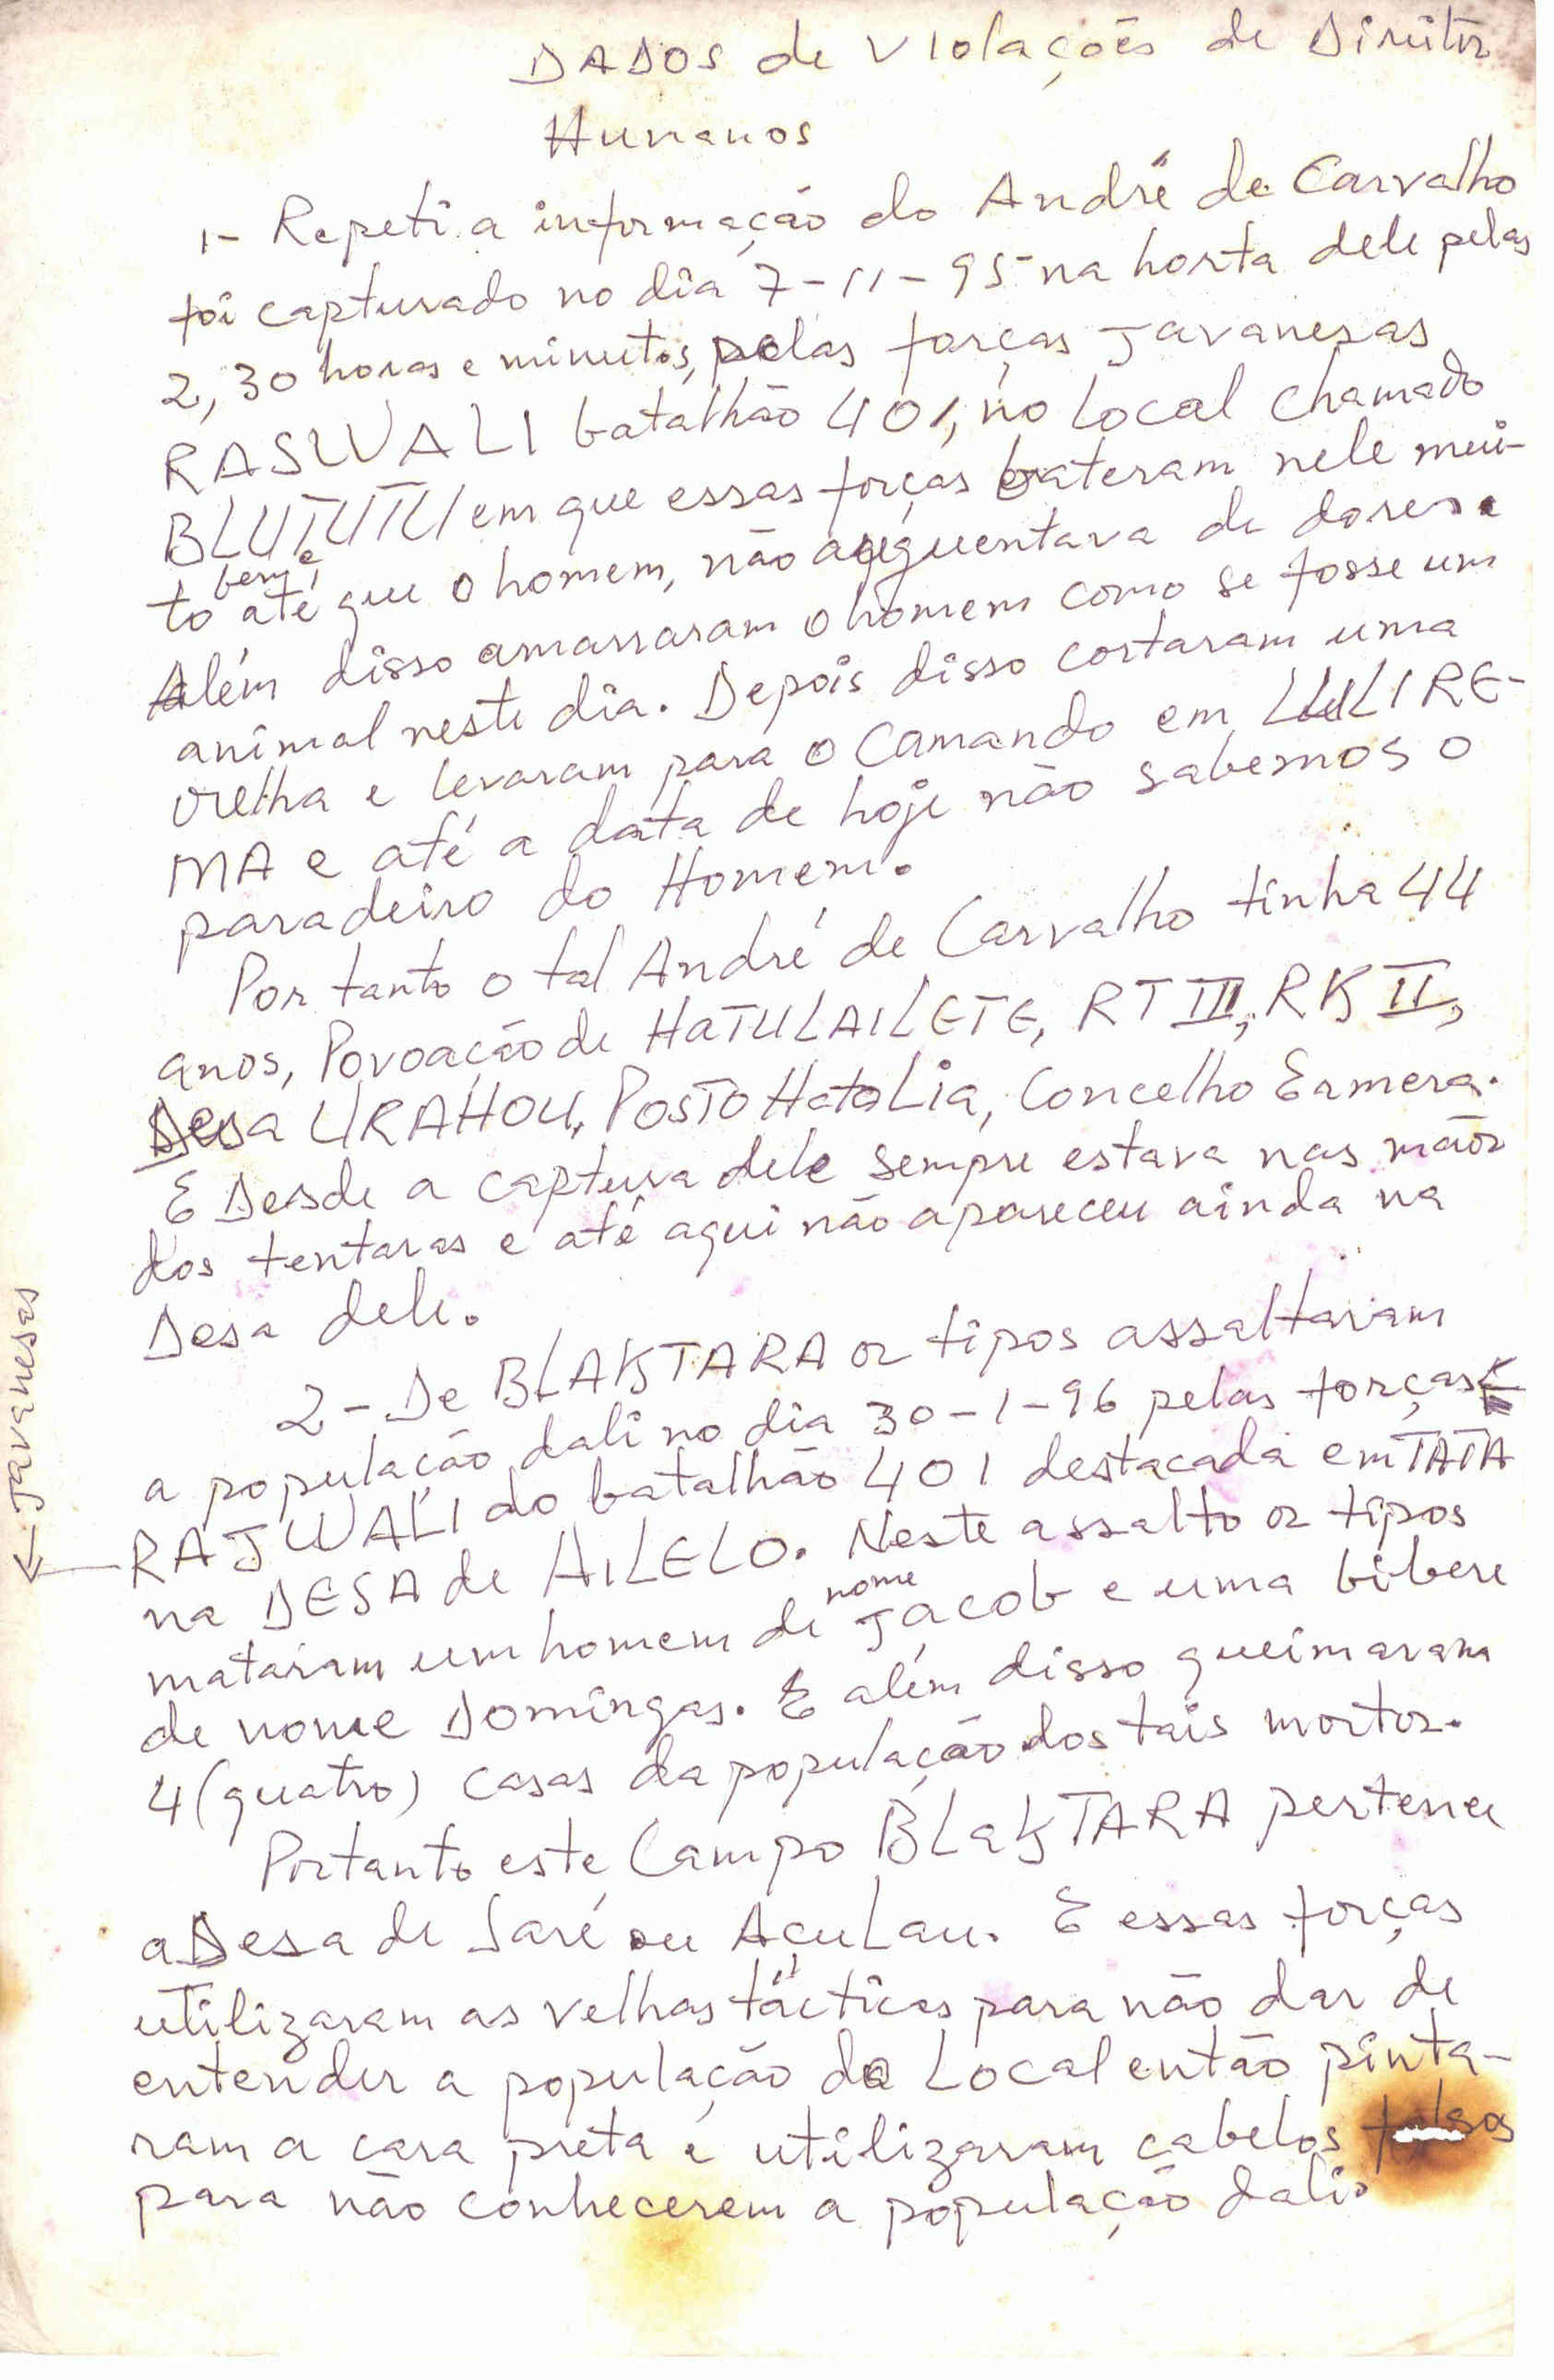 DADOS de Violações de Direitos
Humanos
1- Repeti a informação do André de Carvalho
foi capturado no dia 7-11-95 na horta dele pelas
2,30 horas e minutos, pelas forças Javanesas
RASWALI batalhão 401, no Local chamado
BLUTUTU em que essas forças bateram nele mui-
to bem e até que o homem, não aguentava de dores.
Além disso amarraram o homem como se fosse um
animal neste dia. Depois disso cortaram uma
orelha e levaram para o Camando em LULIRE-
MA e até a data de hoje não sabemos o
paradeiro do Homem.
Por tanto o tal André de Carvalho tinha 44
anos, Povoação de HATULAILETE, RT III, RK II,
Desa URAHOU, POSTO HatoLia, Concelho Ermera.
E Desde a captura dele sempre estava nas mãos
dos tentaras e até aqui não apareceu ainda na
Desa dele.
2- De BLAKTARA os tipos assaltaram
a população dali no dia 30-1-96 pelas forças
← Javanesas
RAJWALI do batalhão 401 destacada em TATA
na DESA de AILELO. Neste assalto os tipos
mataram um homem de nome Jacob e uma bibere
de nome Domingas. E além disso queimaram
4 (quatro) casas da população dos tais mortos.
Portanto este Campo BLaKTARA pertence
a Desa de Saré ou AçuLau. E essas forças
utilizaram as velhas tácticas para não dar de
entender a população do Local então pinta-
ram a cara preta e utilizaram cabelos falsos
para não conhecerem a população dali.